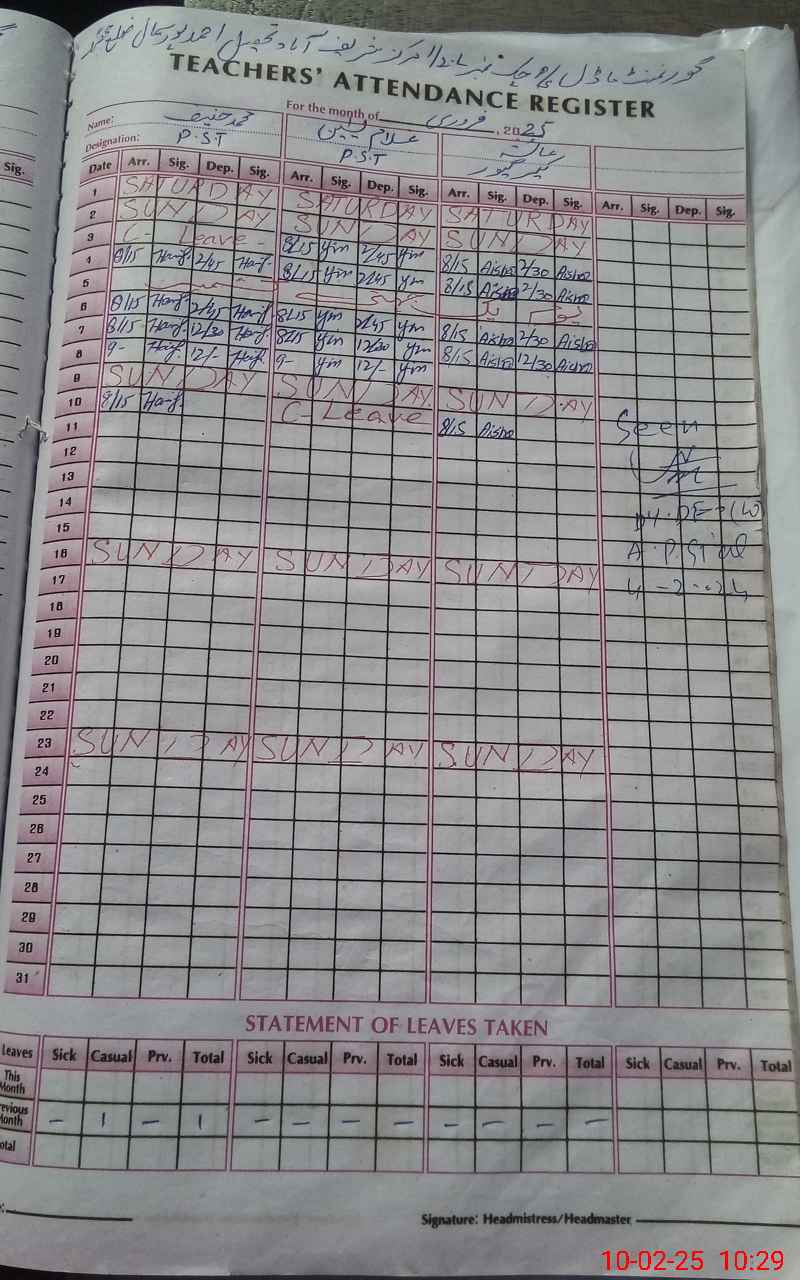 گورنمنٹ ماڈل پرائمری سکول چک نمبر
TEACHERS' ATTENDANCE REGISTER
For the month of فروری , 2025
Name: محمد حنیف غلام یٰسین عائشہ
Designation: P.S.T P.S.T کیئر گیور
Date Arr. Sig. Dep. Sig. Arr. Sig. Dep. Sig. Arr. Sig. Dep. Sig. Arr. Sig. Dep. Sig.
1 SATURDAY SATURDAY SATURDAY
2 SUNDAY SUNDAY SUNDAY
3 C- Leave - 8/15 Ym 2/45 Ym 8/15 Aisha 2/30 Aisha
4 8/15 Hanif 2/45 Hanif 8/15 Ym 2/45 Ym 8/15 Aisha 2/30 Aisha
5
6 8/15 Hanif 2/45 Hanif 8/15 Ym 2/45 Ym 8/15 Aisha 2/30 Aisha
7 8/15 Hanif 12/30 Hanif 8/15 Ym 12/30 Ym 8/15 Aisha 12/30 Aisha
8 9- Hanif 12/- Hanif 9- Ym 12/- Ym
9 SUNDAY SUNDAY SUNDAY
10 8/15 Hanif C- Leave 8/15 Aisha
11 Seen
12
13
14
15
16 SUNDAY SUNDAY SUNDAY
17 4-2-24
18
19
20
21
22
23 SUNDAY SUNDAY SUNDAY
24
25
26
27
28
29
30
31
STATEMENT OF LEAVES TAKEN
Leaves Sick Casual Prv. Total Sick Casual Prv. Total Sick Casual Prv. Total Sick Casual Prv. Total
This Month
Previous Month - 1 - 1 - - - - - - - -
Total
Signature: Headmistress/Headmaster
10-02-25 10:29